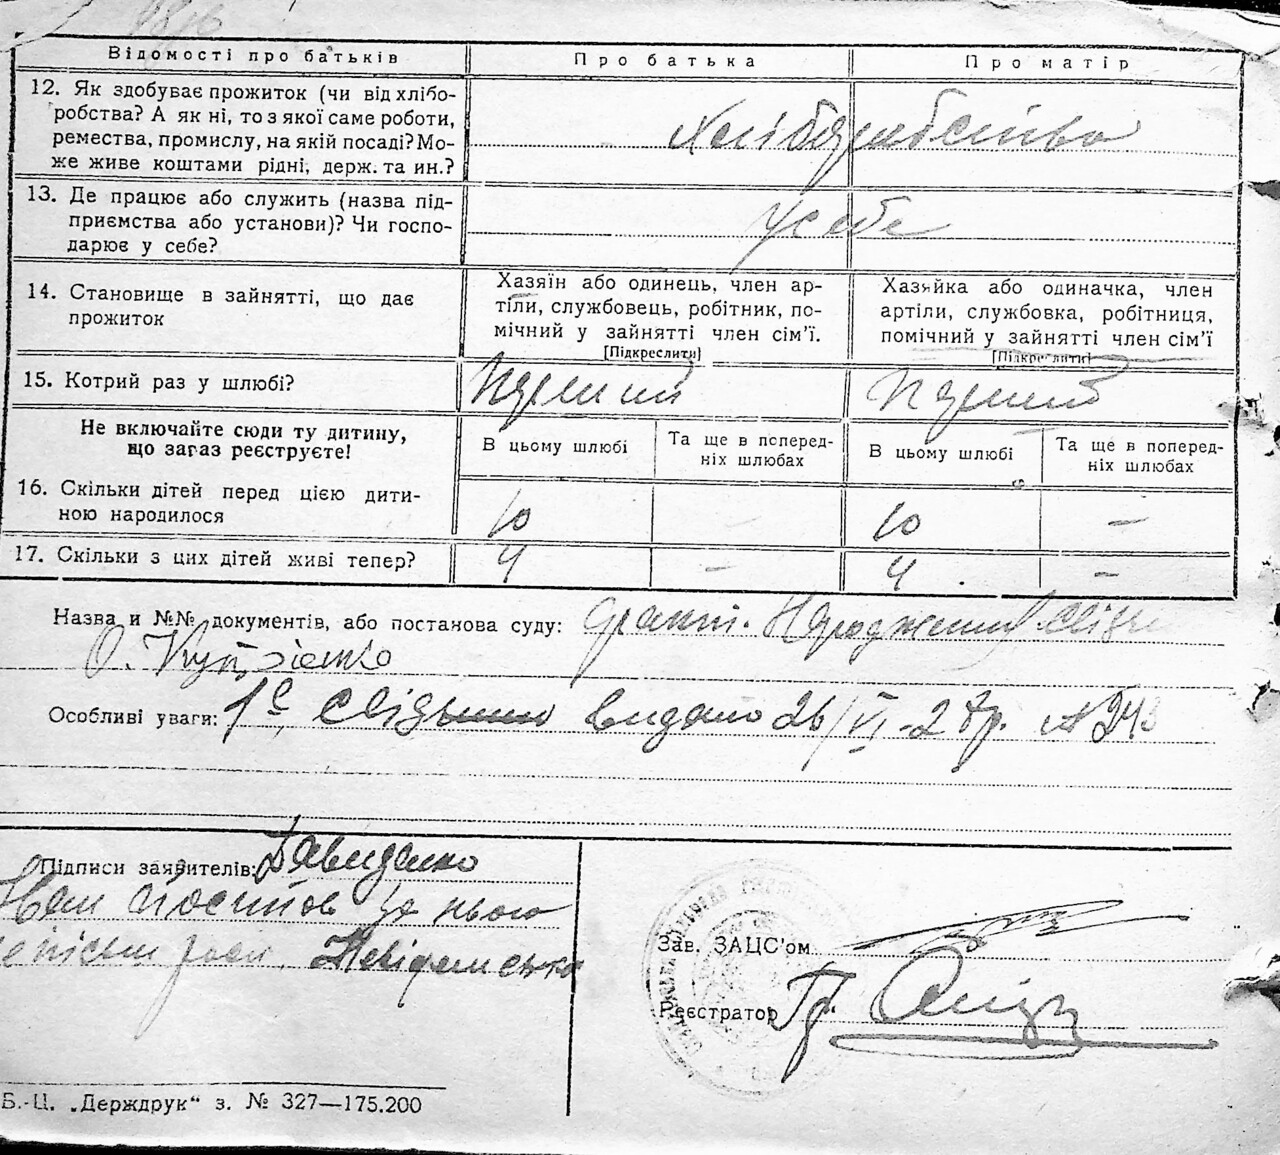 Відомості про батьків
Про батька
Про матір
12. Як здобуває прожиток (чи від хлібо-
робства? А як ні, то з якої саме роботи,
ремества, промислу, на якій посаді? Мо-
же живе коштами рідні, держ. та ин.?
Хліборобство
13. Де працює або служить (назва під-
приємства або установи)? Чи госпо-
дарює у себе?
У себе
14. Становище в зайнятті, що дає
прожиток
Хазяїн або одинець, член ар-
тіли, службовець, робітник, по-
мічний у зайнятті член сім'ї.
[Підкреслити]
Хазяйка або одиначка, член
артіли, службовка, робітниця,
помічний у зайнятті член сім'ї
[Підкреслити]
15. Котрий раз у шлюбі?
Перший
Перший
Не включайте сюди ту дитину,
що загаз реєструєте!
В цьому шлюбі
Та ще в поперед-
ніх шлюбах
В цьому шлюбі
Та ще в поперед-
ніх шлюбах
16. Скільки дітей перед цією дити-
ною народилося
10
–
10
–
17. Скільки з цих дітей живі тепер?
4
–
4
–
Назва и №№ документів, або постанова суду:
Особливі уваги: видано 26/VI-27р. № 243
Підписи заявителів: Давиденко
за нього
Зав. ЗАЦС'ом
Реєстратор
Б.-Ц. „Держдрук“ з. № 327—175.200